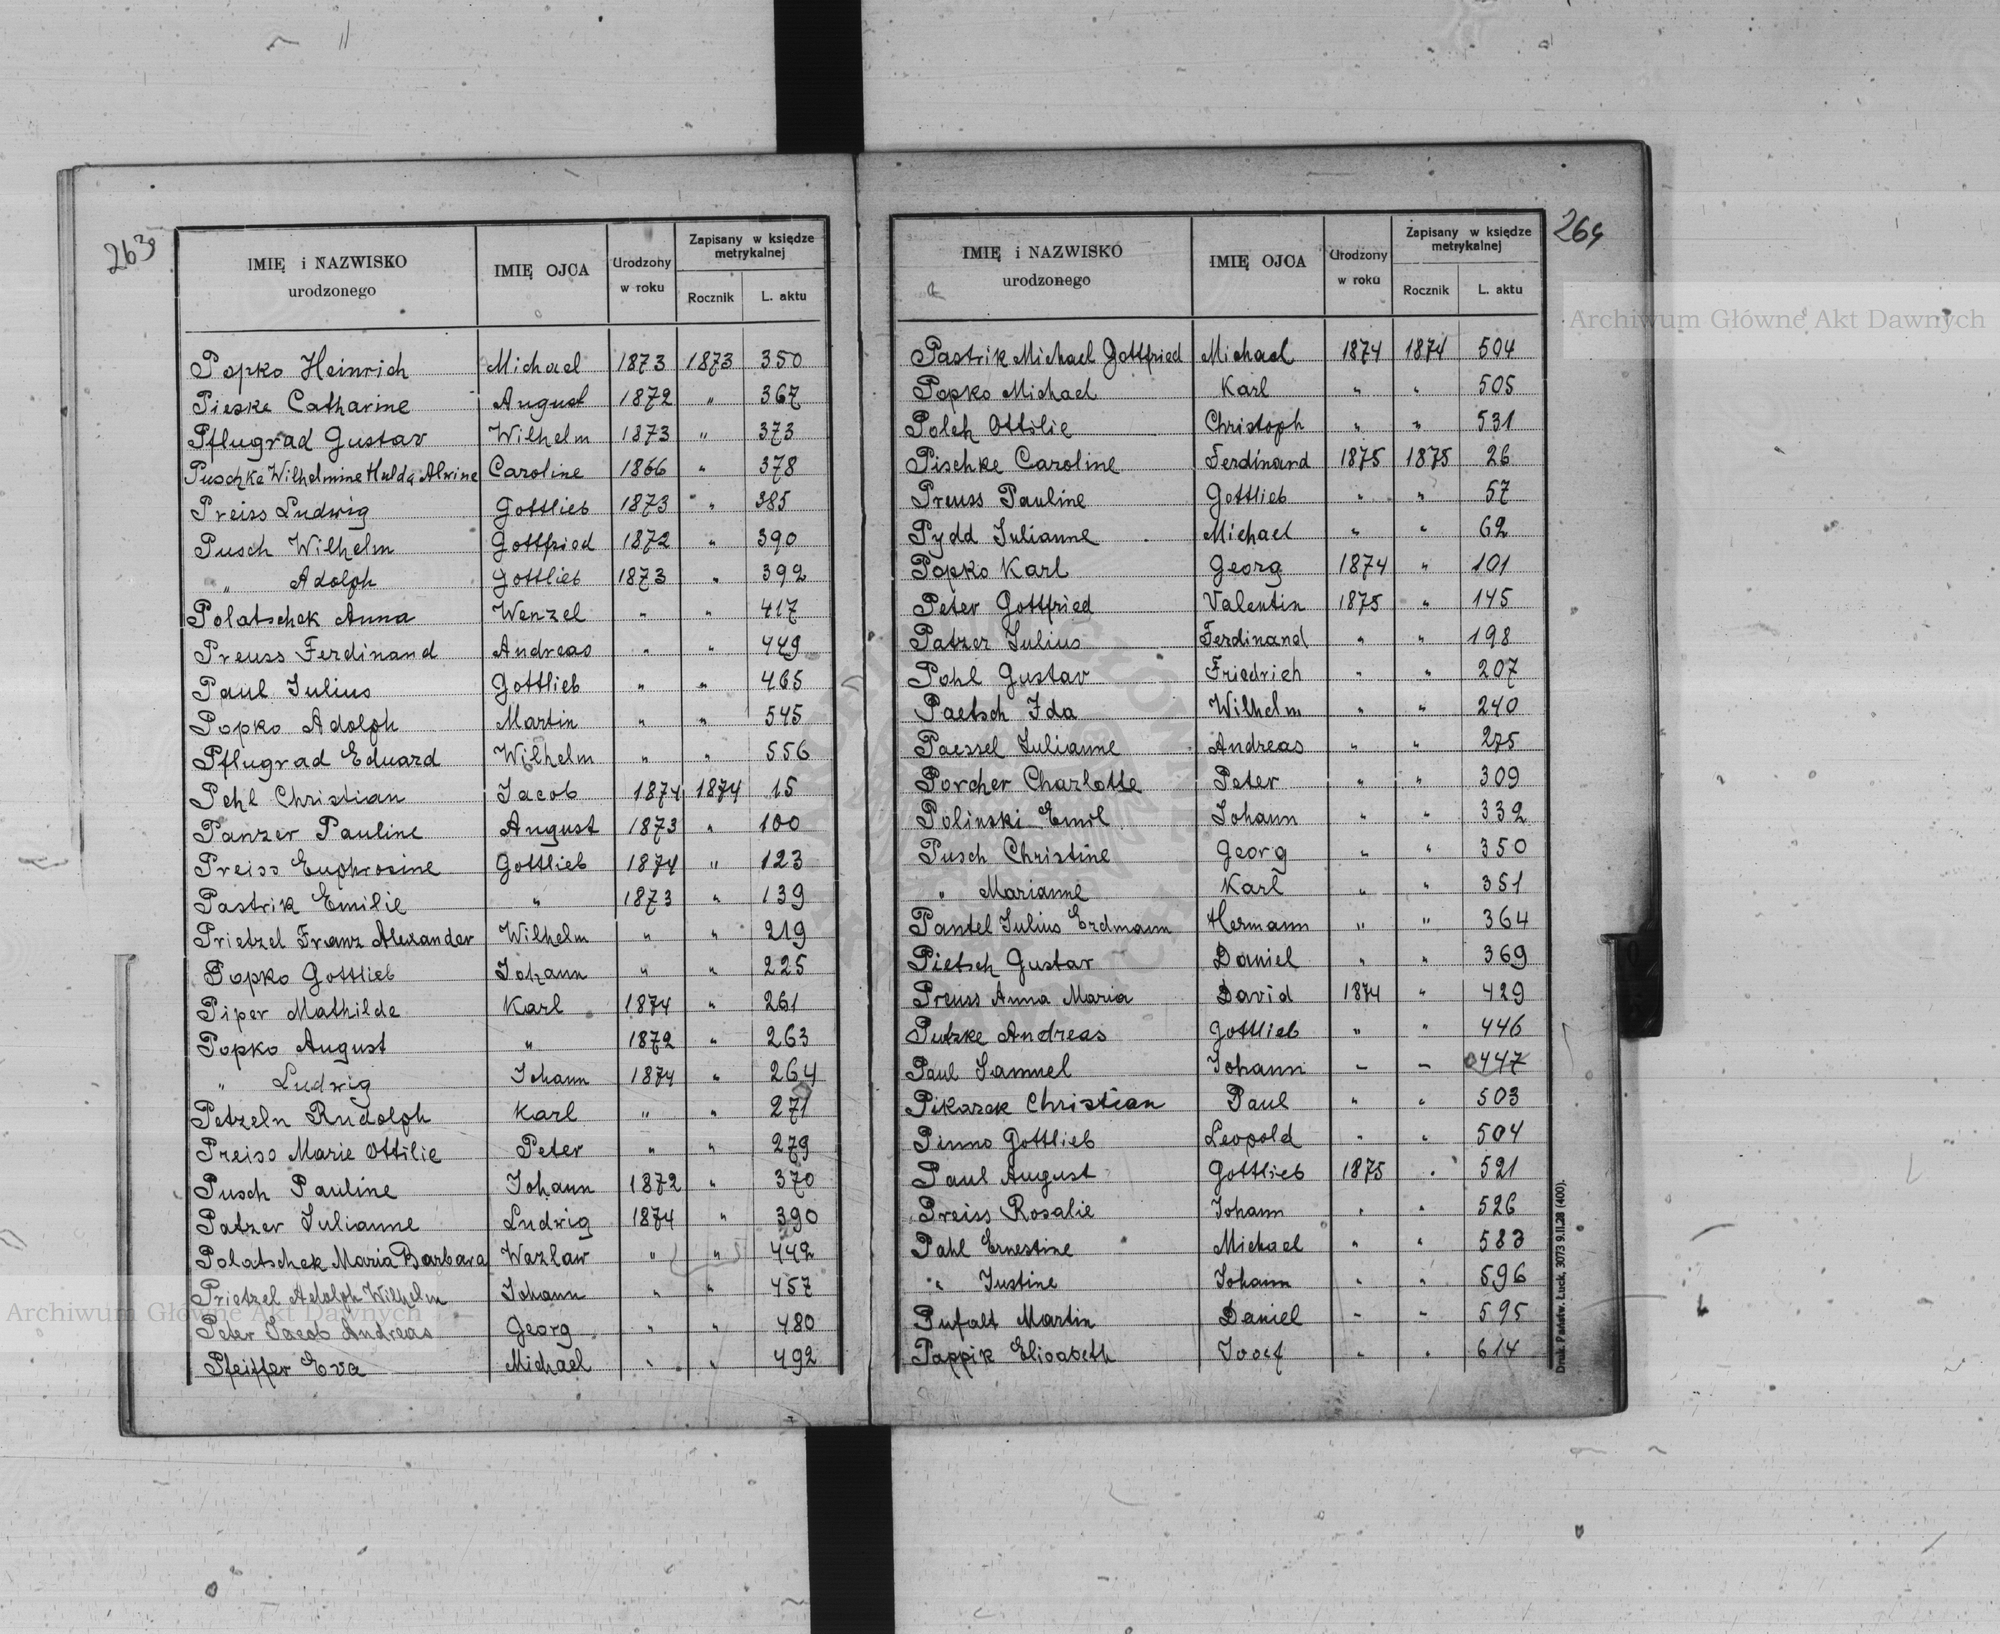 263
IMIĘ i NAZWISKO urodzonego IMIĘ OJCA Urodzony w roku Zapisany w księdze metrykalnej Rocznik L. aktu
Popko Heinrich Michael 1873 1873 350
Pieske Catharine August 1872 " 367
Pflugrad Gustav Wilhelm 1873 " 373
Puschke Wilhelmine Hulda Alwine Caroline 1866 " 378
Preiss Ludwig Gottlieb 1873 " 385
Pusch Wilhelm Gottfried 1872 " 390
" Adolph Gottlieb 1873 " 392
Polatschek Anna Wenzel " " 417
Preuss Ferdinand Andreas " " 449
Paul Julius Gottlieb " " 465
Popko Adolph Martin " " 545
Pflugrad Eduard Wilhelm " " 556
Pehl Christian Jacob 1874 1874 15
Panzer Pauline August 1873 " 100
Preiss Euphrosine Gottlieb 1874 " 123
Pastrik Emilie " 1873 " 139
Prietzel Franz Alexander Wilhelm " " 219
Popko Gottlieb Johann " " 225
Piper Mathilde Karl 1874 " 261
Popko August " 1872 " 263
" Ludwig Johann 1874 " 264
Petzeln Rudolph Karl " " 271
Preiss Marie Ottilie Peter " " 279
Pusch Pauline Johann 1872 " 370
Patzer Julianne Ludwig 1874 " 390
Polatschek Maria Barbara Wazlaw " " 442
Prietzel Adolph Wilhelm Johann " " 457
Peter Jacob Andreas Georg " " 480
Pfeiffer Eva Michael " " 492
264
IMIĘ i NAZWISKO urodzonego IMIĘ OJCA Urodzony w roku Zapisany w księdze metrykalnej Rocznik L. aktu
Pastrik Michael Gottfried Michael 1874 1874 504
Popko Michael Karl " " 505
Poleh Ottilie Christoph " " 531
Pischke Caroline Ferdinand 1875 1875 26
Preuss Pauline Gottlieb " " 57
Pydd Julianne Michael " " 62
Popko Karl Georg 1874 " 101
Peter Gottfried Valentin 1875 " 145
Patzer Julius Ferdinand " " 198
Pohl Gustav Friedrich " " 207
Paetsch Ida Wilhelm " " 240
Paessel Julianne Andreas " " 275
Porcher Charlotte Peter " " 309
Polinski Emil Johann " " 332
Pusch Christine Georg " " 350
" Marianne Karl " " 351
Pantel Julius Erdmann Hermann " " 364
Pietsch Gustav Daniel " " 369
Preuss Anna Maria David 1874 " 429
Putzke Andreas Gottlieb " " 446
Paul Samuel Johann – – 447
Pikarek Christian Paul " " 503
Pinno Gottlieb Leopold " " 504
Paul August Gottlieb 1875 " 521
Preiss Rosalie Johann " " 526
Pahl Ernestine Michael " " 583
" Justine Johann " " 596
Pufalt Martin Daniel – " 595
Pappik Elisabeth Josef " " 614
Druk. Państw. Łuck, 3073 9.II.28 (400).
Archiwum Główne Akt Dawnych
Archiwum Główne Akt Dawnych